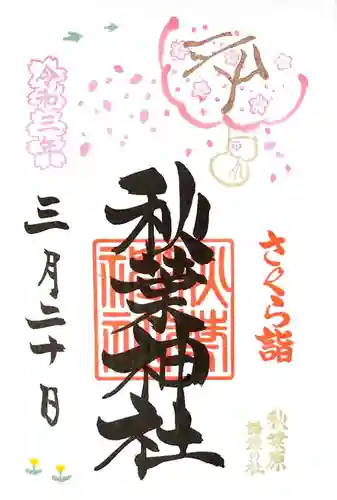 さくら詣
秋葉原
秋葉神社
令和三年
三月二十日